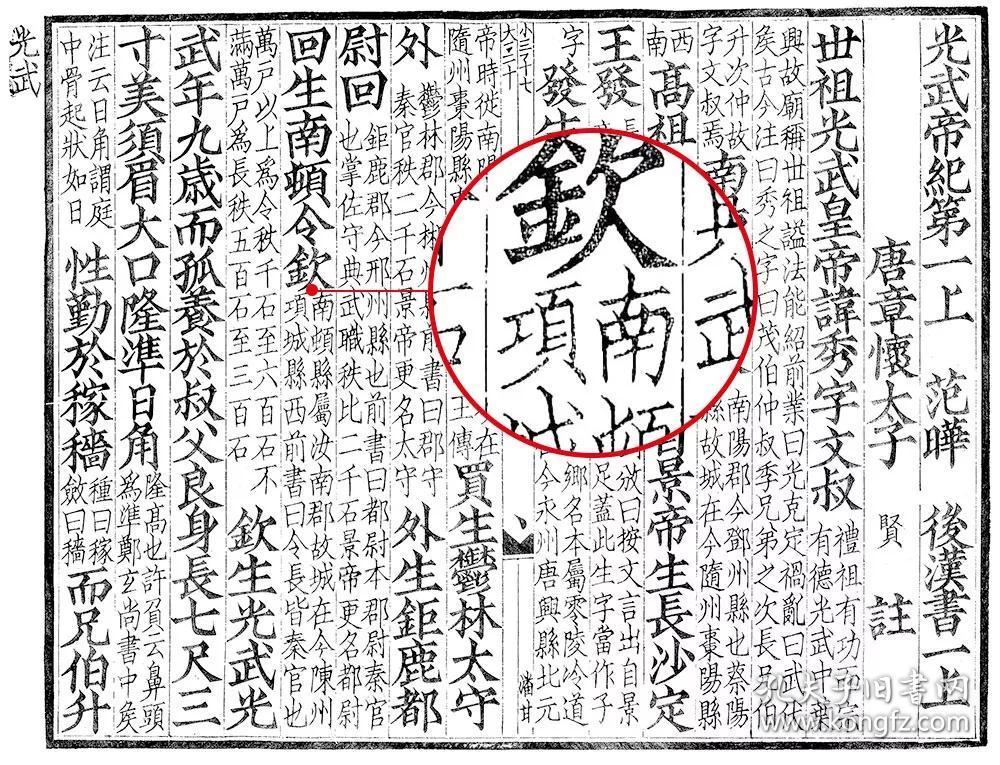 光武帝紀第一上 范曄 後漢書一上
唐章懷太子 賢 註
世祖光武皇帝諱秀字文叔 禮祖有功而宗
有德光武中葉
興故廟稱世祖謚法能紹前業曰光克定禍亂曰武伏
矦古今注曰秀之字曰茂伯仲叔季兄弟之次長兄伯
升次仲故
字文叔焉 南陽郡今鄧州縣也蔡陽
縣故城在今隨州棗陽縣
西
南 高祖 景帝生長沙定
王發 攷曰按文言出自景
足蓋此生字當作子
字 發生 鄉名本屬零陵泠道
今永州唐興縣北元
小三千七
大一千二十
潘甘
帝時徙南
隨州棗陽縣 在
王傳 買生鬱林太守
外 鬱林郡今 前書曰郡守
秦官秩二千石景帝更名太守 外生鉅鹿都
尉回 鉅鹿郡今邢州縣也前書曰都尉本郡尉秦官
也掌佐守典武職秩比二千石景帝更名都尉
回生南頓令欽 南頓縣屬汝南郡故城在今陳州
項城縣西前書曰令長皆秦官也
萬戶以上爲令秩千石至六百石不
滿萬戶爲長秩五百石至三百石 欽生光武光
武年九歲而孤養於叔父良身長七尺三
寸美須眉大口隆準日角 隆高也許負云鼻頭
爲準鄭玄尚書中矦
注云日角謂庭
中骨起狀如日 性勤於稼穡 種曰稼
斂曰穡 而兄伯升
光武
武
欽 南
項
孔夫子旧书网
www.kongfz.com